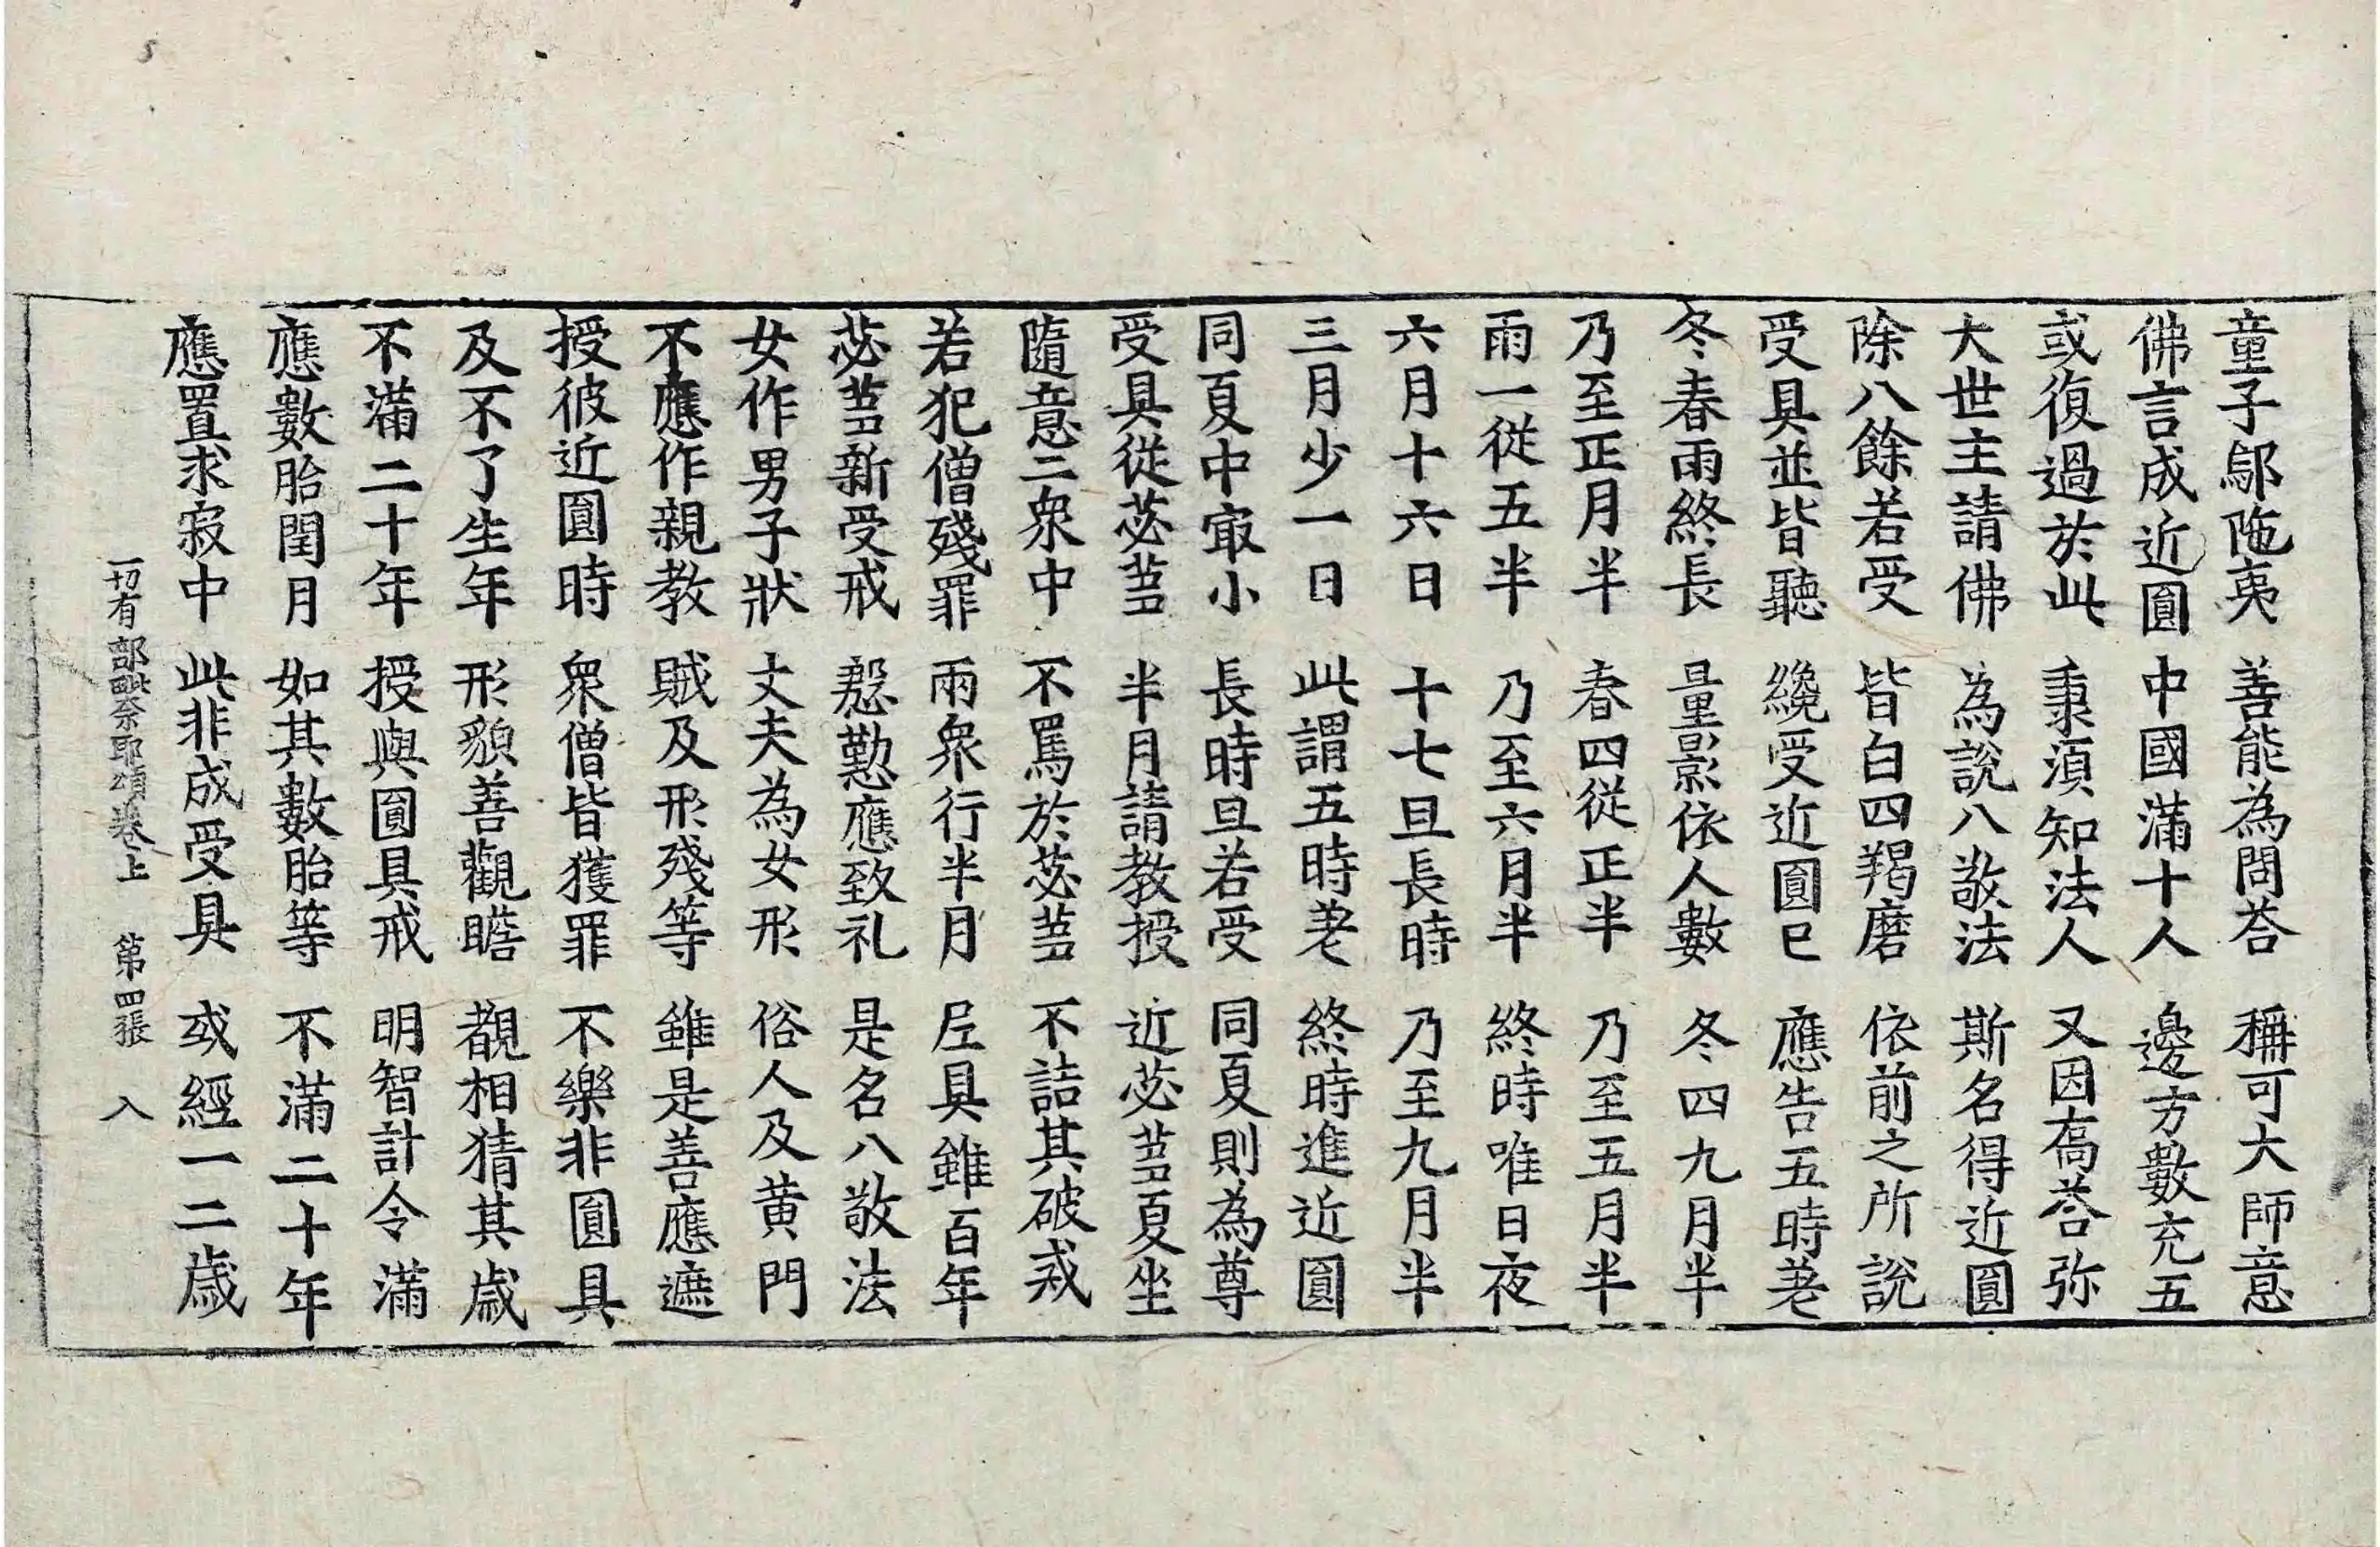 童子鄔陁夷 善能為問荅 稱可大師意
佛言成近圓 中國滿十人 邊方數充五
或復過於此 秉湏知法人 又因高荅弥
大世主請佛 為說八敬法 斯名得近圓
除八餘若受 皆白四羯磨 依前之所說
受具並皆聽 纔受近圓已 應告五時差
冬春雨終長 量影依人數 冬四九月半
乃至正月半 春四從正半 乃至五月半
雨一從五半 乃至六月半 終時唯日夜
六月十六日 十七旦長時 乃至九月半
三月少一日 此謂五時差 終時進近圓
同夏中㝡小 長時旦若受 同夏則為尊
受具從苾蒭 半月請教授 近苾蒭夏坐
隨意二衆中 不罵於苾蒭 不詰其破戒
若犯僧殘罪 兩衆行半月 尼具雖百年
苾蒭新受戒 慇懃應致礼 是名八敬法
女作男子狀 丈夫為女形 俗人及黃門
不應作親教 賊及形殘等 雖是善應遮
授彼近圓時 衆僧皆獲罪 不樂非圓具
及不了生年 形貌善觀瞻 覩相猜其歲
不滿二十年 授與圓具戒 明智計令滿
應數胎閏月 如其數胎等 不滿二十年
應置求寂中 此非成受具 或經一二歲
一切有部毗奈耶頌卷上 第四張 入